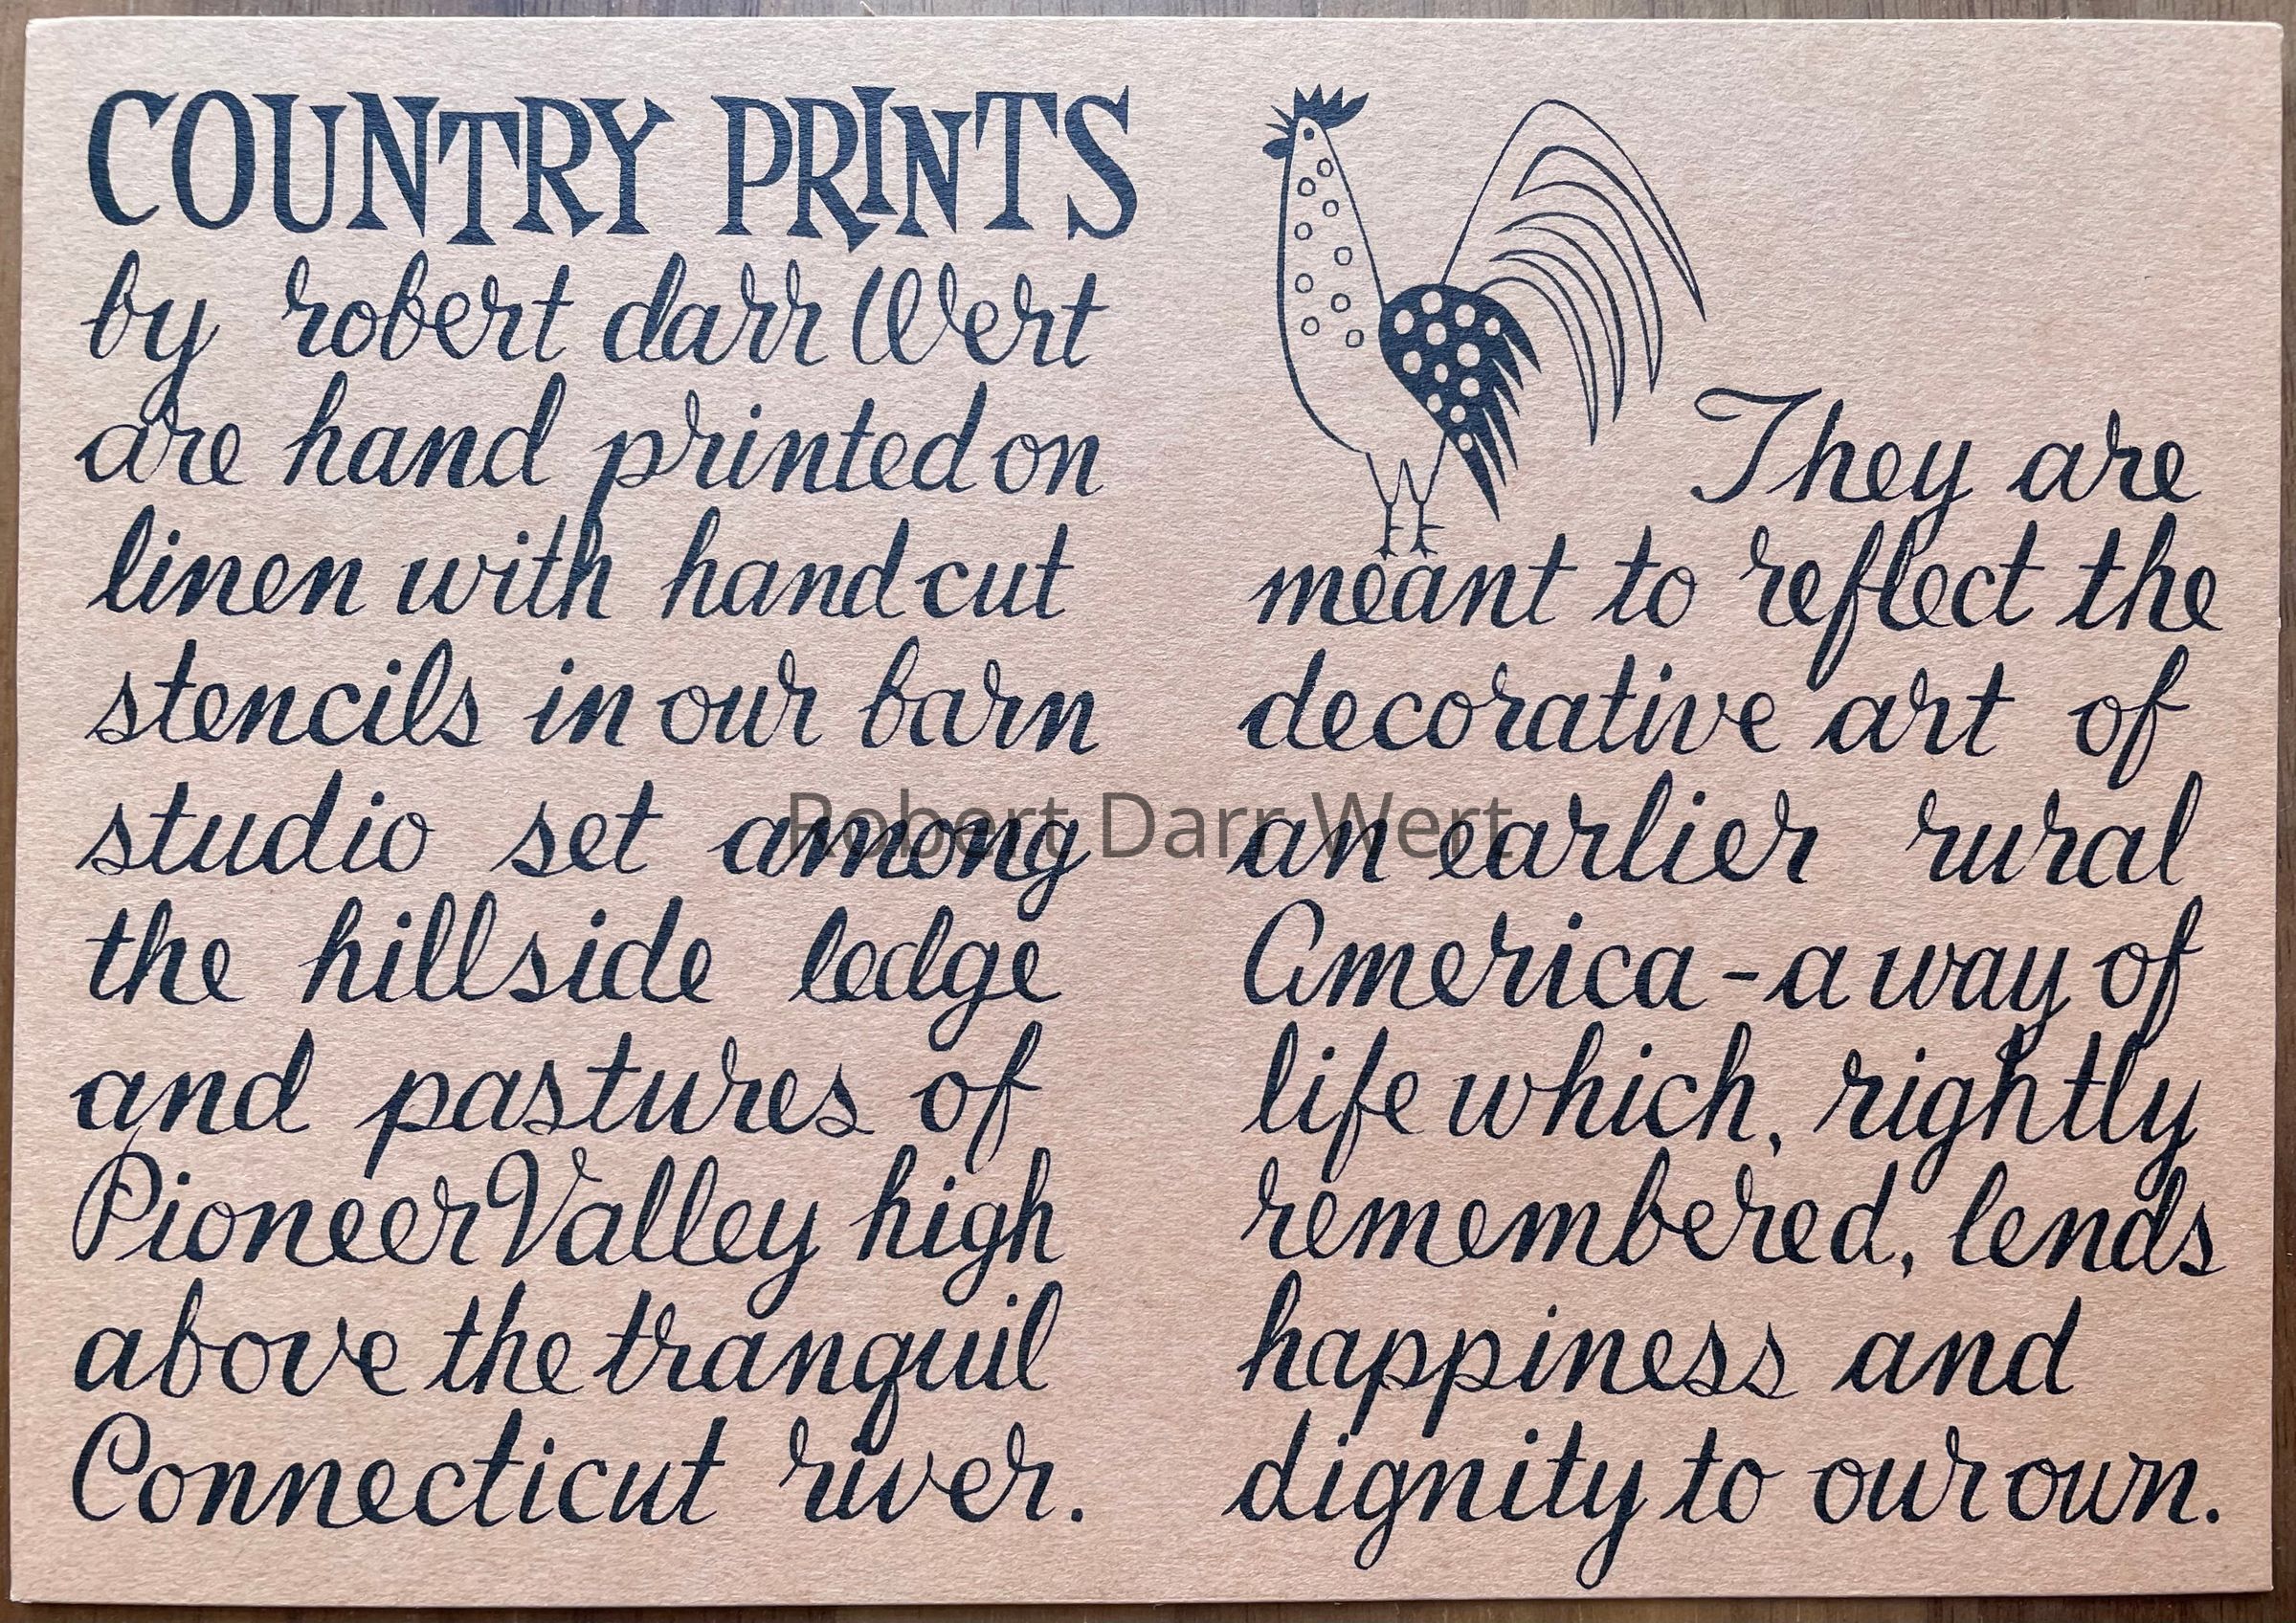 COUNTRY PRINTS
by robert darr Wert
are hand printed on
linen with hand cut
stencils in our barn
studio set among
the hillside ledge
and pastures of
Pioneer Valley high
above the tranquil
Connecticut river.
They are
meant to reflect the
decorative art of
an earlier rural
America - a way of
life which, rightly
remembered, lends
happiness and
dignity to our own.
Robert Darr Wert